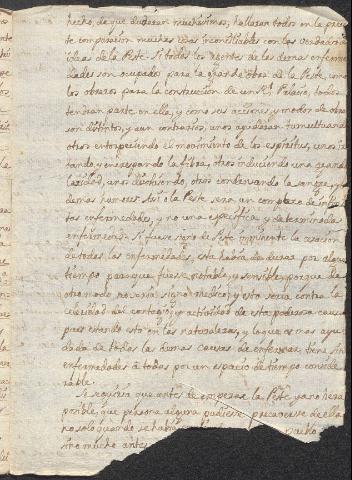 hecho, de que dudaran muchísimos, hallaran todos en la preste
te composicion muchas cosas inconciliables con las verdaderas
ideas de la Peste. Si todos los agentes de las demas enferme
dades son ocupados para la gran de obra de la Peste, como
los obreros para la construccion de un Rl. Palacio, todos
tendran parte en ella, y como sus acciones, y modos de obrar
son distintos, y aun contrarios, unos agitaran tumultuando
otros entorpeciendo el movimiento de los espiritus, unos
tando, y encrespando la fibra, otros induciendo una grande
laxidad, unos disolviendo, otros condensando la sangre, y
demas humores. Asi la Peste sera un complexo de
tas enfermedades, y no una especifica, y determinada
enfermedad. Si fuese signo de Peste inminente la cesacion
de todas las enfermedades, esta havia de durar por algun
tiempo para que fuese notable, y sensible, porque de
otro modo no seria signo medico; y esto seria contra la
celeridad del contagio, y actividad de esta poderosa causa
pues estando esta en las naturalezas, y la que es mas ayu
dada de todas las demas causas de enfermar tiene sin
enfermedades à todos por un espacio de tiempo conside
rable.
Se seguiria que antes de empezar la Peste ya no sera
posible, que persona alguna pudiese precaverse de ella
no solo quando se habia pueblo
sino mucho antes